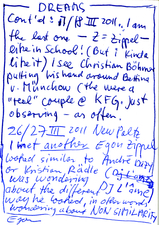 DREAMS
Cont'd: 17/18 III 2011. I am
the last one - Z = Zippel -
like in School! (But I kinda
like it) I see Christian Böhmer
putting his hand around Bettine
v. Münchow (the were a
"real" couple @ KFG. Just
observing - as often.
26/27 III 2011 New Pals
I met another Egon Zippel
looked similar to André
or Kristian Rädle
was wondering
about the different
way he looked, in other words,
wondering about NON SIMILARITY
Egon